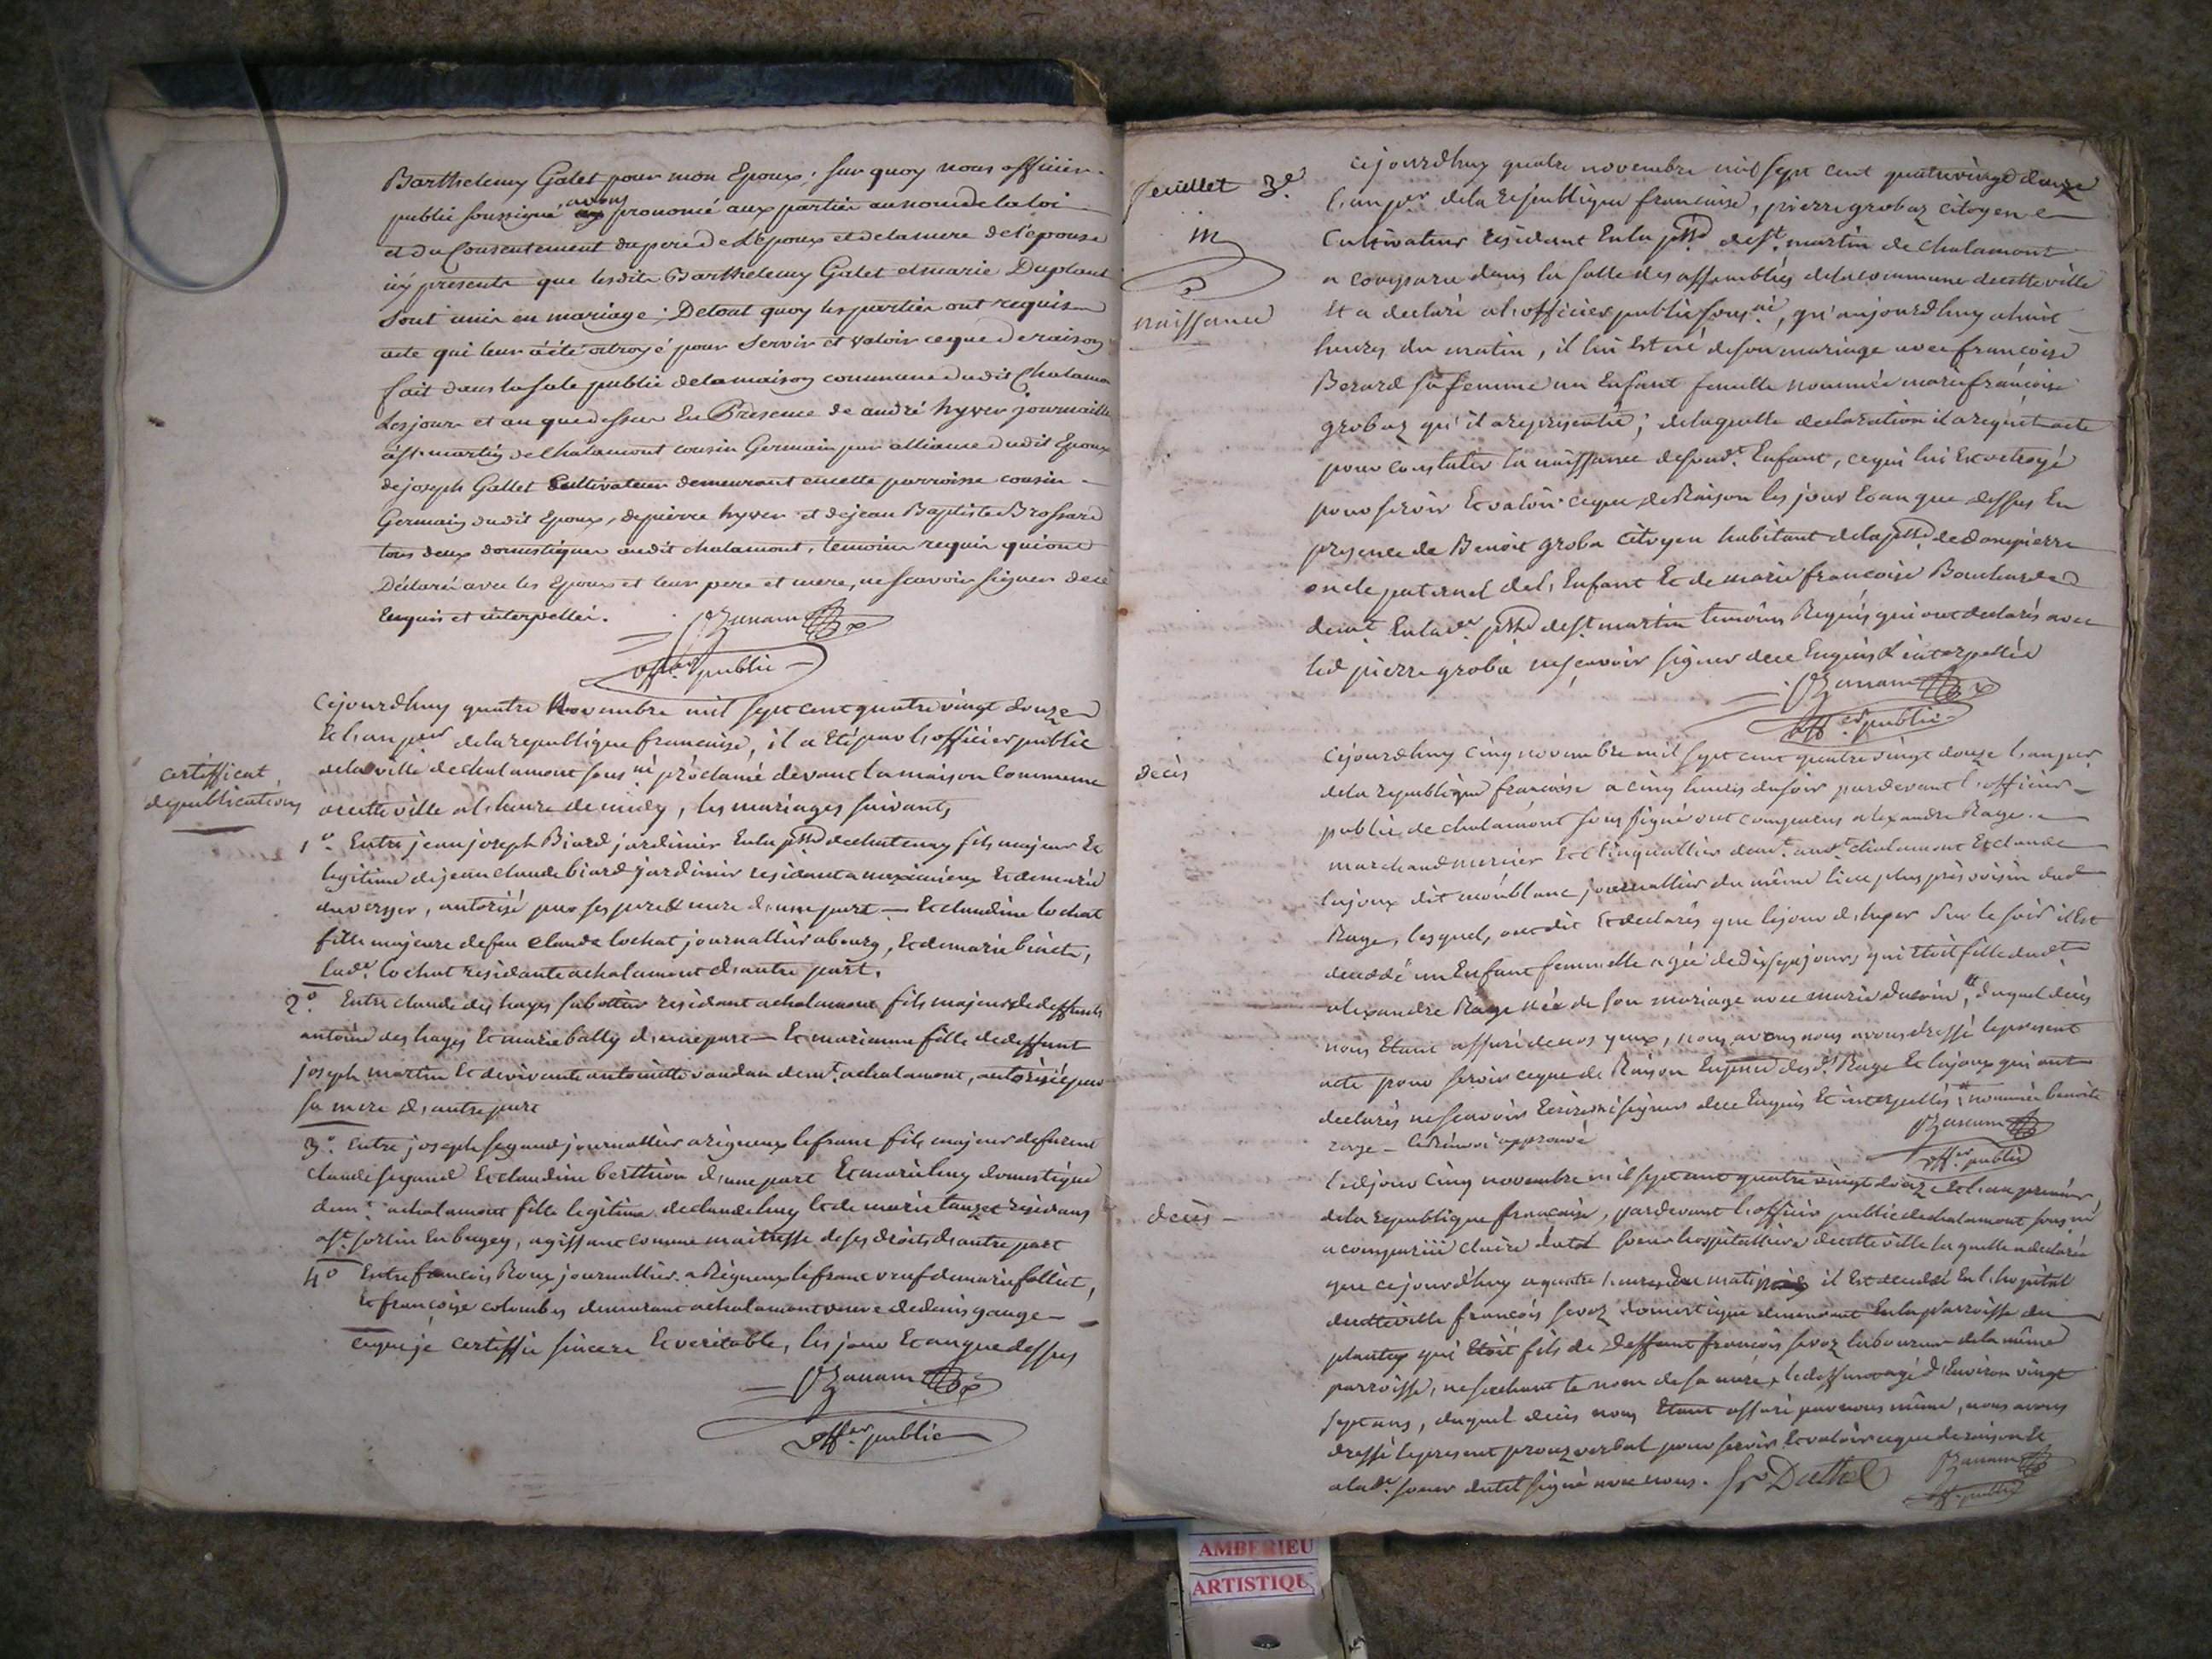 Barthelemy Galet pour mon Epoux, sur quoy nous officier
public soussigné avons prononcé aux parties au nom de la loi
et du Consentement du pere de L'epoux et de la mere de l'epouse
icy presents que lesdits Barthelemy Galet et marie Duplant
sont unis en mariage ; De tout quoy les parties ont requis
acte qui leur a été octroyé pour servir et valoir ce que de raison
fait dans la sale public de la maison commune dudit Chalamo
les jours et an que dessus En Presence de andré hyver journaillie
à st. martin de Chalamont cousin Germain par alliance dudit Epoux
de joseph Gallet Cultivateur demeurant en cette parroisse cousin
Germain dudit Epoux, de pierre hyver et de jean Baptiste Brossard
tous deux domestiques audit chalamont, temoins requis qui ont
Déclaré avec les Epoux et leur pere et mere, ne scavoir signer de ce
Enquis et interpellés.
Ozanam
offer. public
certifficat
de publications
Cejourdhuy quatre Novembre mil sept cent quatre vingt douze
Et l'an per de la republique francaise, il a Eté par l'officier public
de la ville de chalamont sous né proclamé devant la maison Commune
de cette ville a l'heure de midy, les mariages suivants
1o. Entre jean joseph Biard jardinier En la psse de chatenay fils majeur Et
legitime de jean claude biard jardinier residant a meximieux Et de marie
duverger, autorisé par ses pere & mere d'une part — Et claudine lochat
fille majeure de feu claude lochat journallier a bourg, Et de marie
lade. lochat residante a chalamont d'autre part.
2o. Entre claude des hayes sabottier residant a chalamont fils majeur de deffunts
antoine des hayes Et marie bally d'une part — Et marianne fille de deffunt
joseph martin Et de vivante antoinette vaudan demt. a chalamont, autorisée par
sa mere d'autre part
3o. Entre joseph segaud journallier a rigneux lefranc fils majeur de furent
claude segaud Et claudine berthion d'une part Et marie huy domestique
demt. a chalamont fille legitime de claude huy Et de marie residans
a st. sorlin En bugey, agissant comme maitresse de ses droits d'autre part
4o Entre francois Roux journallier a Rigneux lefranc veuf de marie folliet,
Et francoise colombes demeurant a chalamont veuve de denis gauge —
ce que je certiffie sincere Et veritable, les jour Et an que dessus
Ozanam
offer. public
feuillet 3e.
naissance
Cejourdhuy quatre novembre mil sept cent quatre vingt douze
l'an per de la republique francaise, pierre grobaz Citoyen
Cultivateur residant En la psse de st. martin de chalamont
a comparu dans la salle des assemblées de la commune de cette ville
Et a declaré a l'officier public sous né, qu'aujourdhuy a huit
heures du matin, il lui Est né de son mariage avec francoise
Berard sa femme un Enfant femelle nommée marie francoise
grobaz qu'il a representée ; de laquelle declaration il a requit acte
pour constater la naissance de sond. Enfant, ce qui lui Est octroyé
pour servir Et valoir ce que de Raison les jour Et an que dessus En
presence de Benoit groba Citoyen habitant de la psse de dompierre
oncle paternel de l'Enfant Et de marie francoise Bouchard
demt. En lade. psse de st. martin temoins Requis qui ont declarés avec
led pierre groba ne scavoir signer de ce Enquis & interpellés
Ozanam
offer public
decès
Cejourdhuy cinq novembre mil sept cent quatre vingt douze l'an per
de la republique francaise a cinq heures du soir pardevant l'officier
public de chalamont soussigné ont comparus alexandre Rage
marchand mercier Et clinquallier demt. aud. chalamont Et claude
lajoux dit montblanc journallier du même lieu plus près voisin dud
Rage, lesquels, ont dit Et declarés que le jour d'hyer sur le soir il Est
decedé un Enfant femelle agée de dix sept jours qui Etoit fille dud.
alexandre Rage née de son mariage avec marie, duquel decès
nous Etant assuré de nos yeux, nous avons nous avons dressé le present
acte pour servir ce que de Raison En presce desd. Rage Et lajoux qui ont
declarés ne scavoir Ecrire ni signer de ce Enquis Et interpellés nommée benoite
rage — le Renvoi approuvé
Ozanam
offer public
decès —
Led jour Cinq novembre mil sept cent quatre vingt douze Et l'an premier
de la republique francaise, pardevant l'officier public de chalamont sous né
a comparue claire dutel soeur hospitalliere de cette ville laquelle a declarée
que ce jourd'huy a quatre heures du matin il Est decedé En l'hopital
de cette ville francois savoz domestique demeurant En la parroisse du
plantey qui Etoit fils de deffunt francois savoz laboureur de la même
parroisse, ne sachant le nom de sa mere, led deffunt agé d'Environ vingt
sept ans, duquel decès nous Etant assuré par nous même, nous avons
dressé le present procez verbal pour servir Et valoir ce que de raison Et
a lade. soeur dutel signé avec nous. Sr Duthel
Ozanam
off. public
AMBERIEU
ARTISTIQU